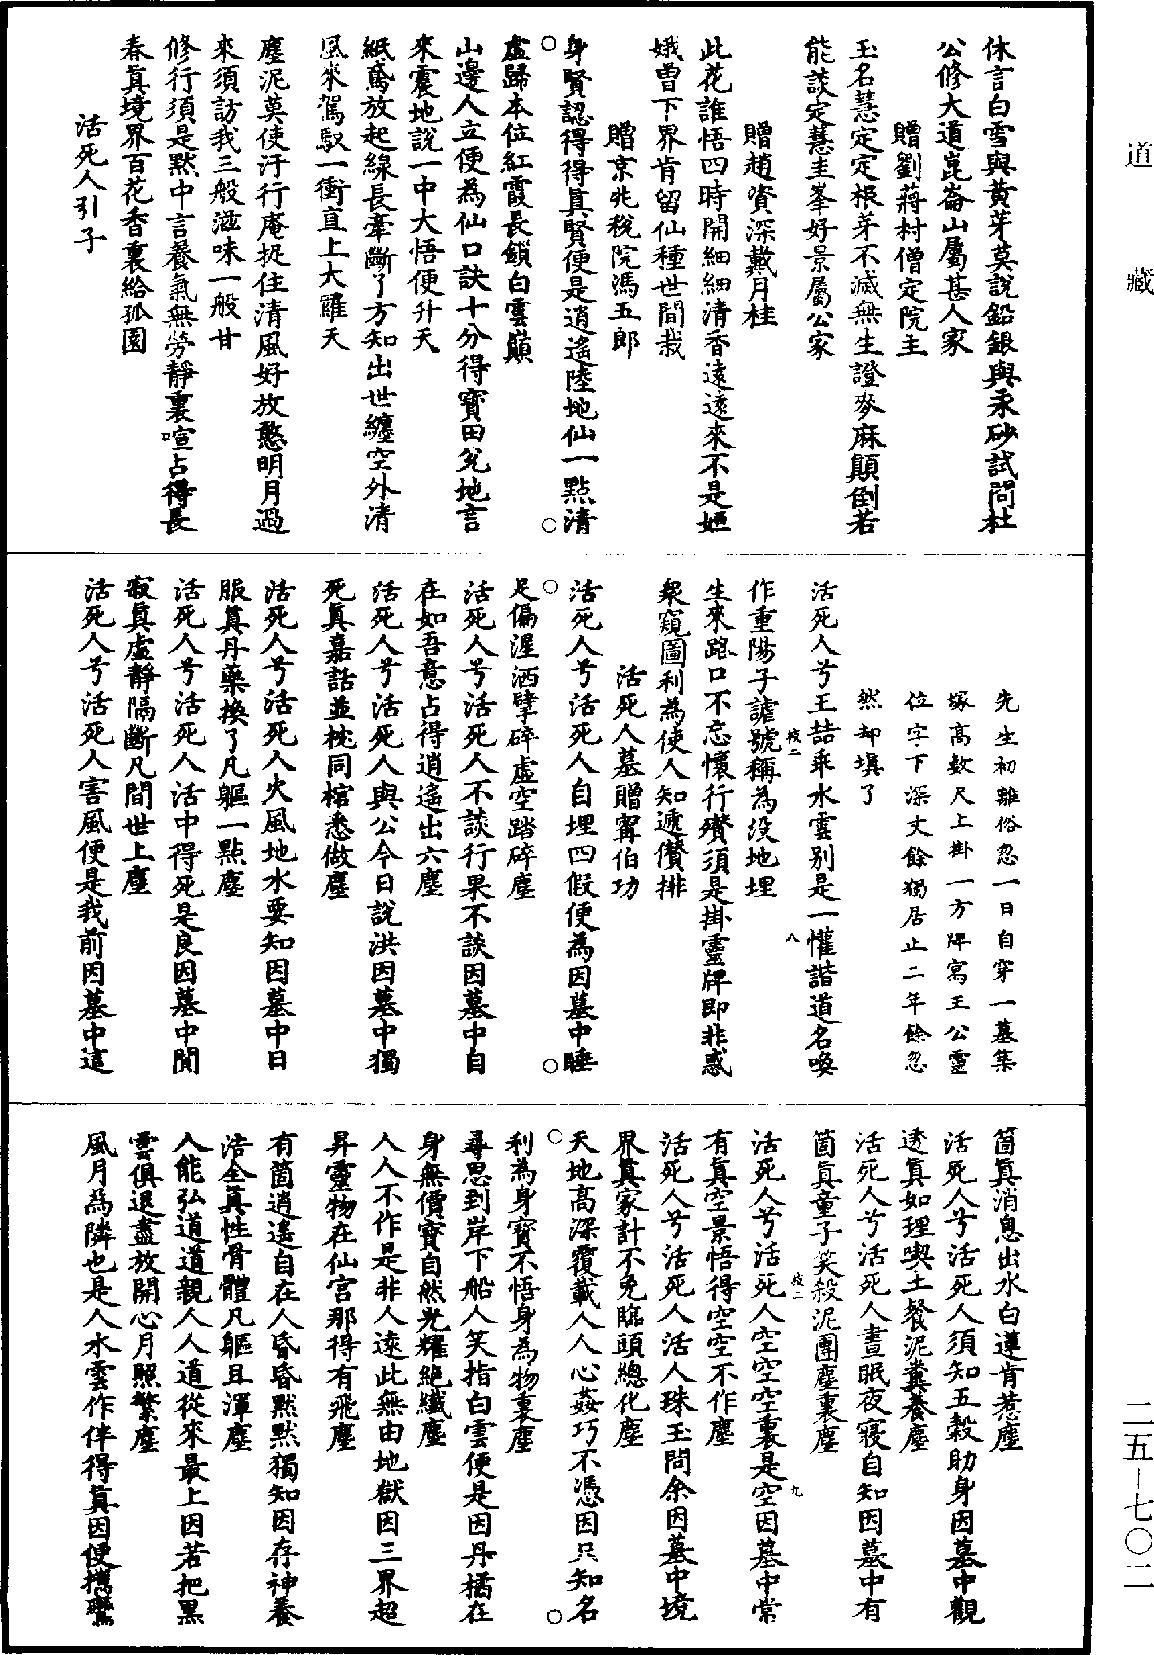 道藏
休言白雪與黃芽莫說鉛銀與汞砂試問杜
公修大道崑崙山屬甚人家
贈劉蔣村僧定院主
玉名慧定定根芽不滅無生證麥麻顛倒若
能談定慧圭峯好景屬公家
贈趙資深戴月桂
此花誰悟四時開細細清香遠遠來不是姮
娥曾下界肯留仙種世間栽
贈京兆稅院馮五郎
身賢認得得真賢便是逍遙陸地仙一點清
虛歸本位紅霞長鎖白雲巔
山邊人立便為仙口訣十分得寶田兌地言
來震地說一中大悟便升天
紙鳶放起線長牽斷了方知出世纏空外清
風來駕馭一衝直上大羅天
塵泥莫使汙行庵捉住清風好放憨明月過
來須訪我三般滋味一般甘
修行須是默中言養氣無勞靜裏喧占得長
春真境界百花香裏給孤園
活死人引子
先生初離俗忽一日自穿一墓築
塚高數尺上掛一方牌寫王公靈
位字下深丈餘獨居止二年餘忽
然却填了
活死人兮王喆乖水雲別是一懽諧道名喚
作重陽子謔號稱為沒地埋
生來路口不忘懷行殯須是掛靈牌即非惑
衆窺圖利為使人知遞儧排
活死人墓贈甯伯功
活死人兮活死人自埋四假便為因墓中睡
足偏渥洒擘碎虛空踏碎塵
活死人兮活死人不談行果不談因墓中自
在如吾意占得逍遙出六塵
活死人兮活死人與公今日說洪因墓中獨
死真嘉話並枕同棺悉做塵
活死人兮活死人火風地水要知因墓中日
服真丹藥換了凡軀一點塵
活死人兮活死人活中得死是良因墓中閒
寂真虛靜隔斷凡間世上塵
活死人兮活死人害風便是我前因墓中這
箇真消息出水白蓮肯惹塵
活死人兮活死人須知五穀助身因墓中觀
透真如理喫土餐泥糞養塵
活死人兮活死人晝眠夜寢自知因墓中有
箇真童子笑殺泥團塵裏塵
活死人兮活死人空空空裏是空因墓中常
有真空景悟得空空不作塵
活死人兮活死人活人珠玉問余因墓中境
界真家計不免臨頭總化塵
天地高深覆載人人心姦巧不憑因只知名
利為身寶不悟身為物裏塵
尋思到岸下船人笑指白雲便是因丹橘在
身無價寶自然光耀絕纖塵
人人不作是非人遠此無由地獄因三界超
昇靈物在仙宮那得有飛塵
有箇逍遙自在人昏昏默默獨知因存神養
浩全真性骨體凡軀且渾塵
人能弘道道親人人道從來最上因若把黑
雲俱退盡放開心月照繁塵
風月為隣也是人水雲作伴得真因便攜鸞
二五-七〇二